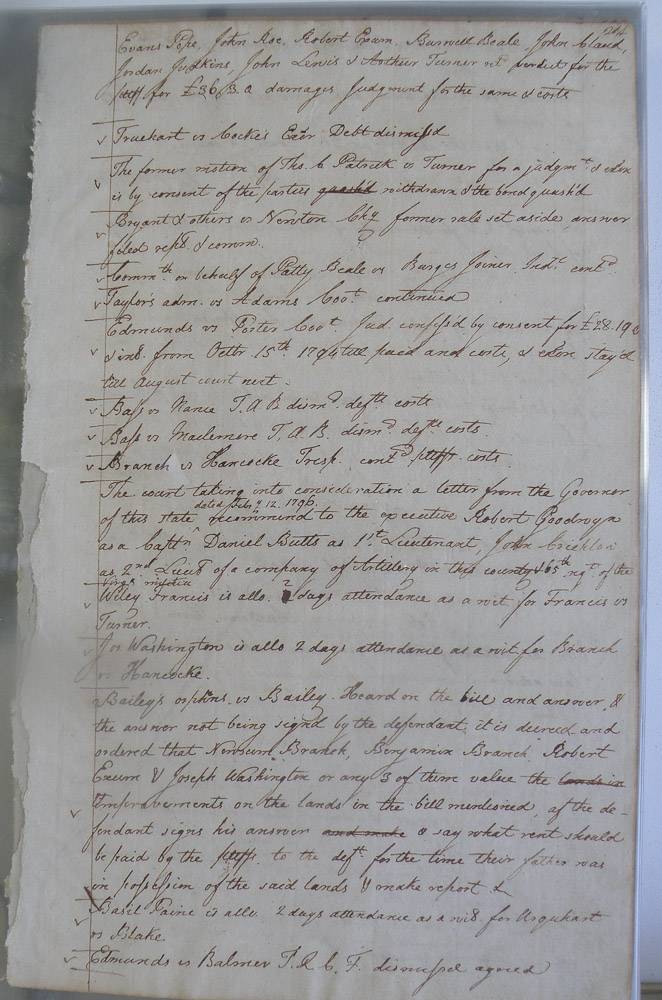 Evans Pope, John Roe, Robert Exum, Burwell Beale, John Claud,
Jordan Judkins, John Lewis & Arthur Turner retd. verdict for the
pltff. for £36.3.2 damages Judgment for the same & costs
Truehart vs Cocke's Exor Debt dismiss'd
The former motion of Ths. C Patrick vs Turner for a judgmt. & exon
is by consent of the parties quash'd withdrawn & the bond quash'd
Bryant & others vs Newton Chy. former rule set aside answer
filed repn. & comm.
Commth. on behalf of Patty Beale vs Burges Joiner Indt. contd.
Taylor's adm. vs Adams Covt. continued
Edmunds vs Porter Covt. Jud. confess'd by consent for £28.19.
& int. from Octbr. 15th. 1794 till paid and costs, & exon stay'd
till August court next.
Bass vs Nance T. A B dismd. defts. costs
Bass vs Maclemore T. A. B. dismd. defts. costs
Branch vs Hancocke Tresp. contd. pltffs. costs.
The court taking into consideration a letter from the Governor
of this state dated Feby. 12. 1796. recommend to the executive Robert Goodwyn
as a Captn. Daniel Butts as 1st. Lieutenant, John Crichlow
as 2nd Lieut of a company of Artillery in this county & 65th regt. of the
Virga militia
Wiley Francis is allo. 2 days attendance as a wit for Francis vs
Turner.
Jos Washington is allo 2 days attendance as a wit for Branch
vs Hancocke.
Bailey's orphns. vs Bailey. Heard on the bill and answer, &
the answer not being signd by the defendant, it is decreed and
ordered that Newsum Branch, Benjamin Branch, Robert
Exum & Joseph Washington or any 3 of them value the lands in
improvements on the lands in the bill mentioned, af the de-
fendant signs his answer and make & say what rent should
be paid by the pltffs. to the deft. for the time their father was
in possession of the said lands & make report &
Basil Paine is allo. 2 days attendance as a wit. for Urquhart
vs Blake
Edmunds vs Balmer T. & C. F. dismissed agreed